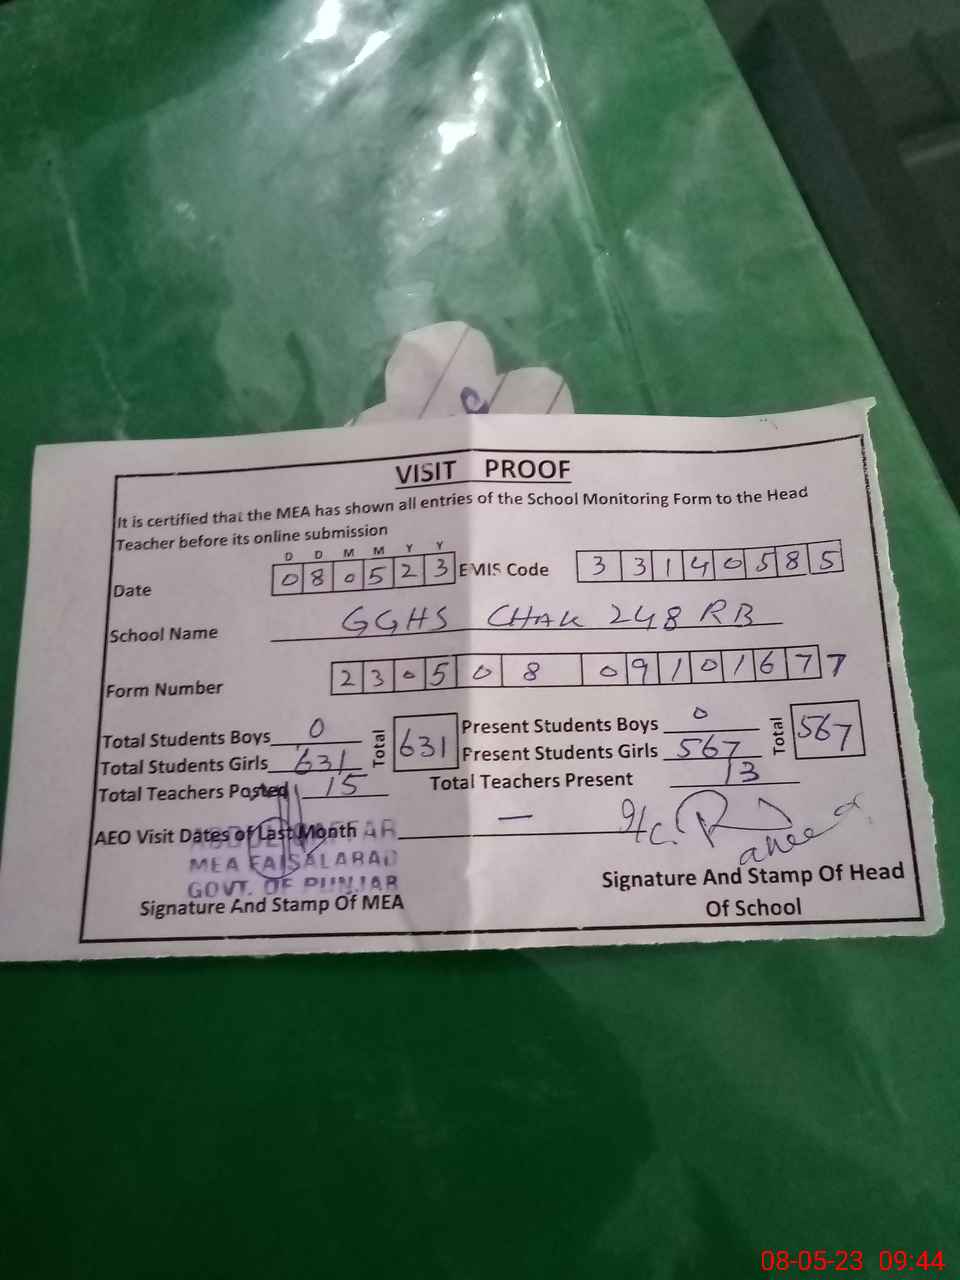 VISIT PROOF
It is certified that the MEA has shown all entries of the School Monitoring Form to the Head
Teacher before its online submission
D D M M Y Y
Date 0 8 0 5 2 3 EMIS Code 3 3 1 4 0 5 8 5
School Name GGHS CHAK 248 RB
Form Number 2 3 0 5 0 8 0 9 1 0 1 6 7 7
Total Students Boys 0 Total 631 Present Students Boys 0 Total 567
Total Students Girls 631 Present Students Girls 567
Total Teachers Posted 15 Total Teachers Present 13
AEO Visit Dates of Last Month —
MEA FAISALABAD
GOVT. OF PUNJAB
Signature And Stamp Of MEA
Signature And Stamp Of Head
Of School
08-05-23 09:44